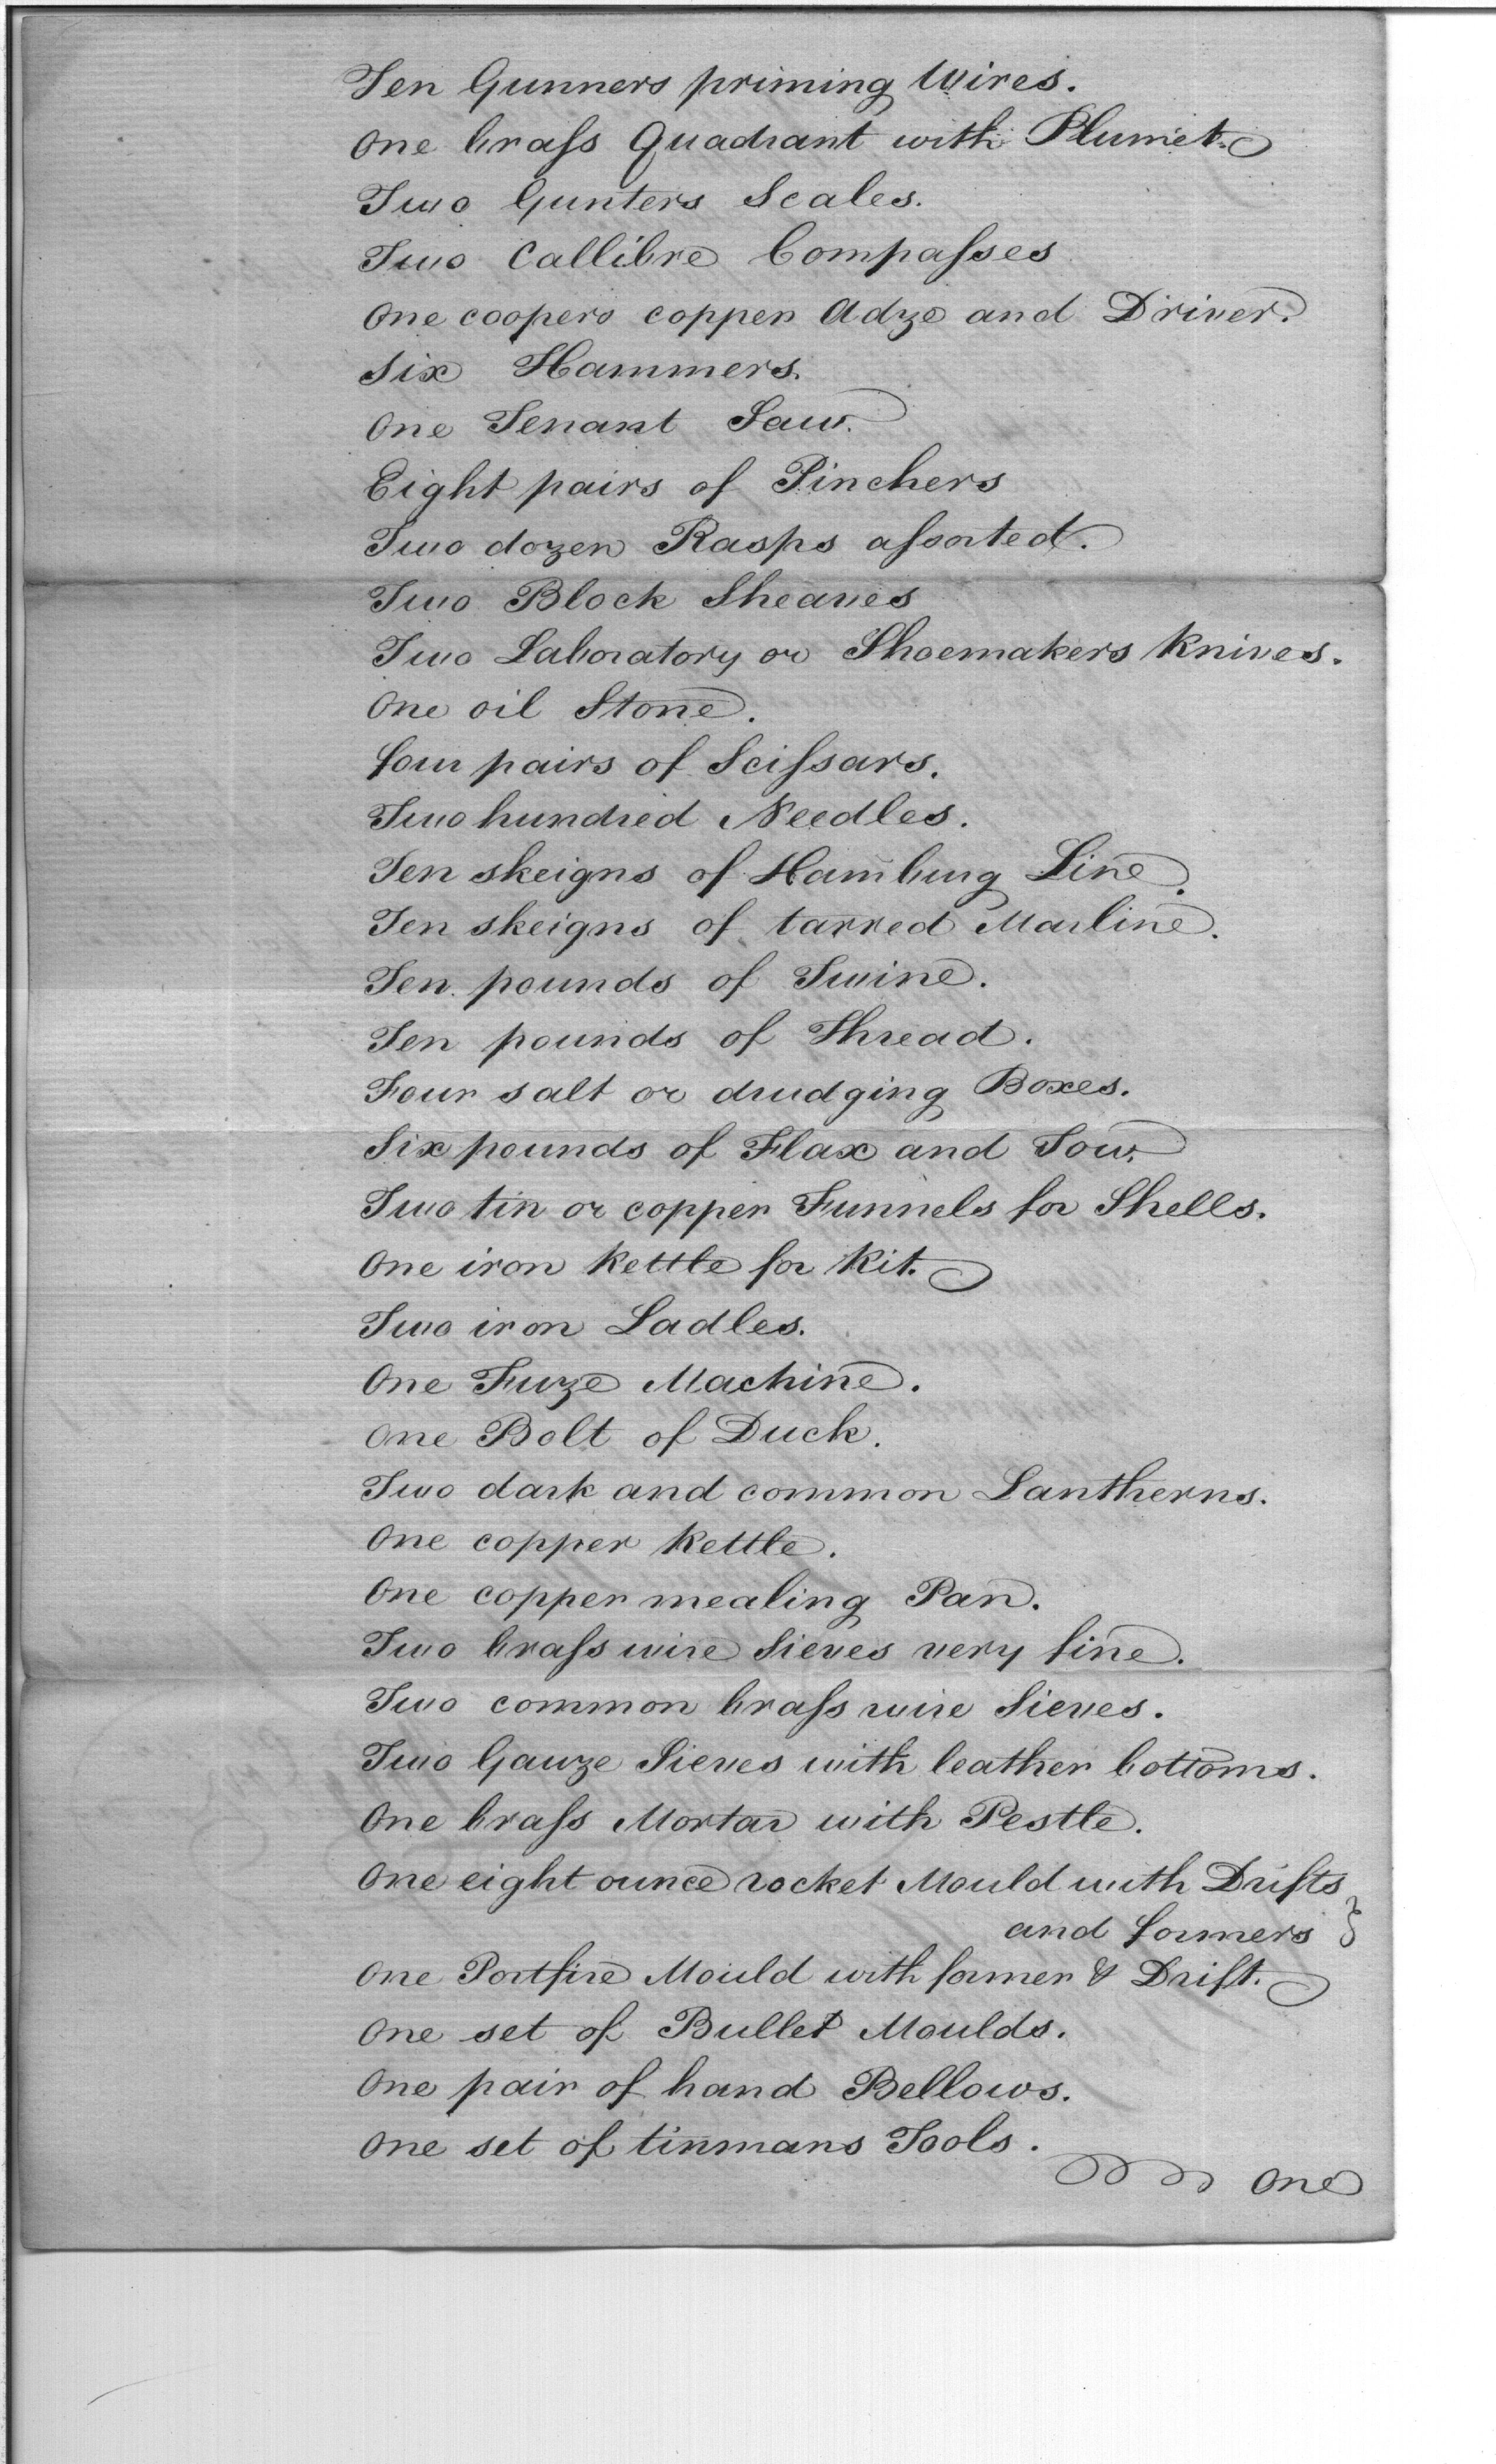 Ten Gunners priming Wires.
One brass Quadrant with Plumet.
Two Gunters Scales.
Two Callibre Compasses
One coopers copper Adze and Driver.
Six Hammers.
One Tenant Saw.
Eight pairs of Pinchers
Two dozen Rasps assorted.
Two Block Sheaves
Two Laboratory or Shoemakers Knives.
One oil Stone.
four pairs of Scissars.
Two hundred Needles.
Ten skeigns of Hamburg Line.
Ten skeigns of tarred Marline.
Ten pounds of Twine.
Ten pounds of Thread.
Four salt or drudging Boxes.
Six pounds of Flax and Tow.
Two tin or copper Funnels for Shells.
One iron Kettle for Kit.
Two iron Ladles.
One Fuze Machine.
One Bolt of Duck.
Two dark and common Lantherns.
One copper Kettle.
One copper mealing Pan.
Two brass wire Sieves very fine.
Two common brass wire Sieves.
Two Gauze Sieves with leather bottoms.
One brass Mortar with Pestle.
One eight ounce rocket Mould with Drifts
and formers }
One Portfire Mould with former & Drift.
One set of Bullet Moulds.
One pair of hand Bellows.
One set of tinmans Tools.
One